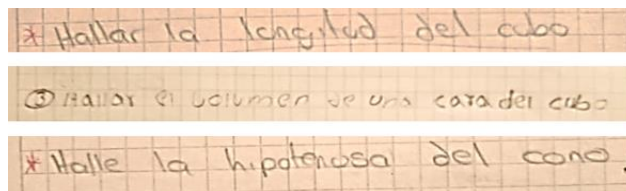 * Hallar la longitud del cubo
③ Hallar el volumen de una cara del cubo
* Halle la hipotenosa del cono.